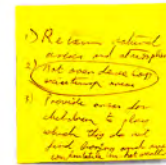 1) Retain natural
areas and atmosphere
2) Not over develop
areas
3) Provide areas for
children to play
which they do not
find boring and
comfortable in hot